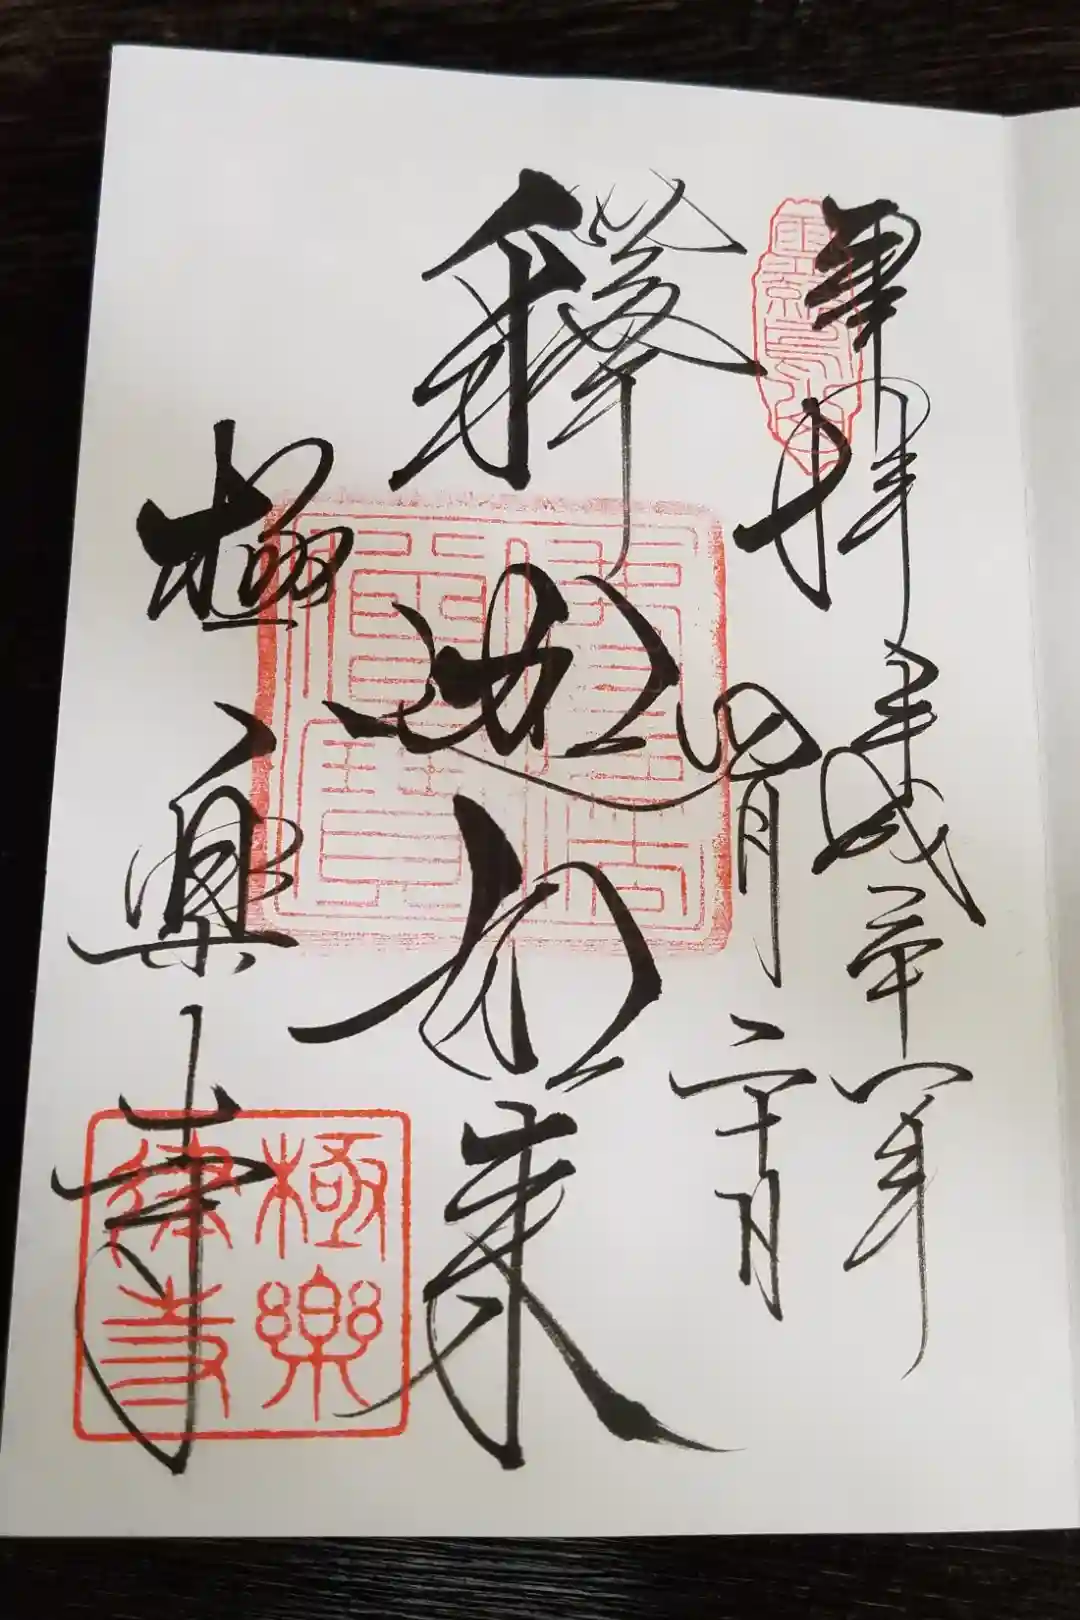 奉拝 平成三十一年
四月二十日
釋迦如来
極樂寺
極樂
律寺